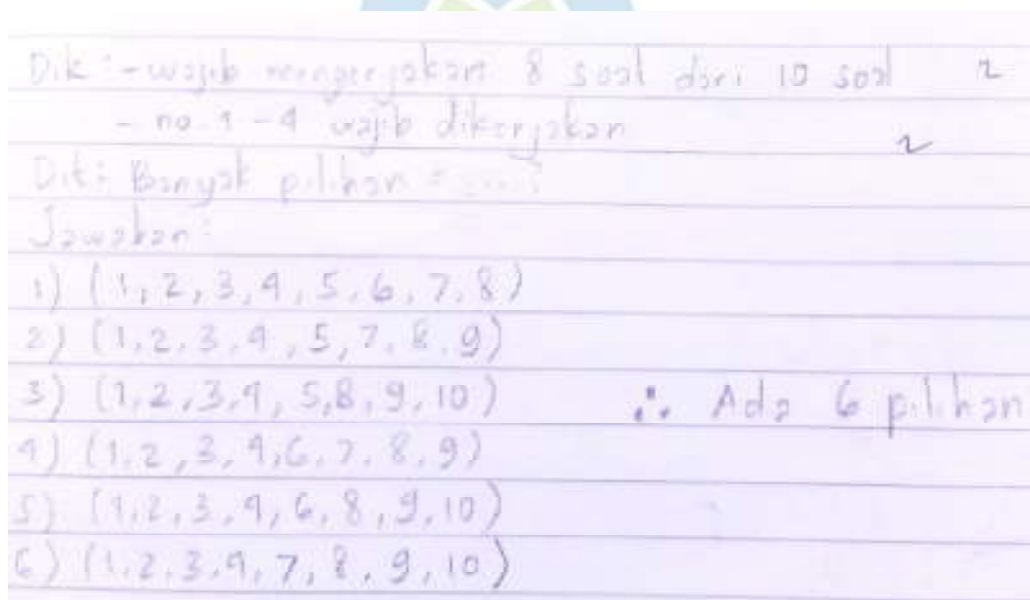 Dik : - wajib mengerjakan 8 soal dari 10 soal 2
- no. 1 - 4 wajib dikerjakan 2
Dit : Banyak pilihan =
Jawaban :
1) (1, 2, 3, 4, 5, 6, 7, 8)
2) (1, 2, 3, 4, 5, 7, 8, 9)
3) (1, 2, 3, 4, 5, 8, 9, 10) ∴ Ada 6 pilihan
4) (1, 2, 3, 4, 6, 7, 8, 9)
5) (1, 2, 3, 4, 6, 8, 9, 10)
6) (1, 2, 3, 4, 7, 8, 9, 10)